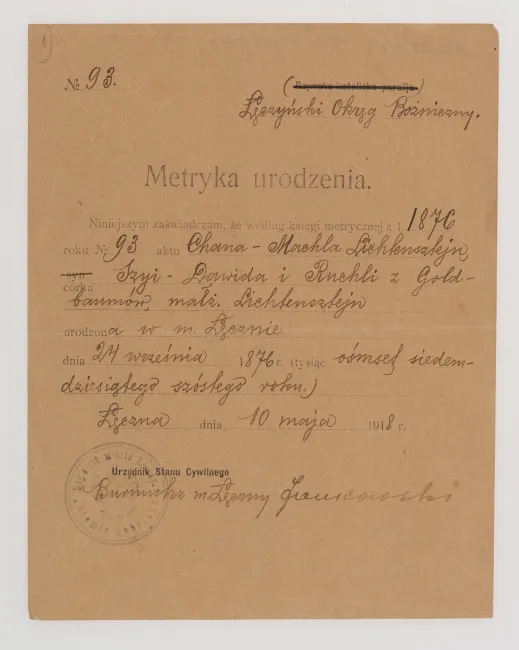 1)
№ 93.
(Rzymsko-katolicka parafja)
Łęczyński Okręg Bożniczny.
Metryka urodzenia.
Niniejszym zaświadczam, że według księgi metrycznej z 1. 1876
roku № 93 aktu Chana-Machla Lichtensztejn,
syn
córka Szyi-Dawida i Ruchli z Gold-
baumów, małż. Lichtensztejn
urodzona w m. Łęcznie
dnia 24 września 1876 r. (tysiąc ośmset siedem-
dziesiątego szóstego roku.)
Łęczna dnia 10 maja 1918 r.
Urzędnik Stanu Cywilnego
Burmistrz m. Łęczny